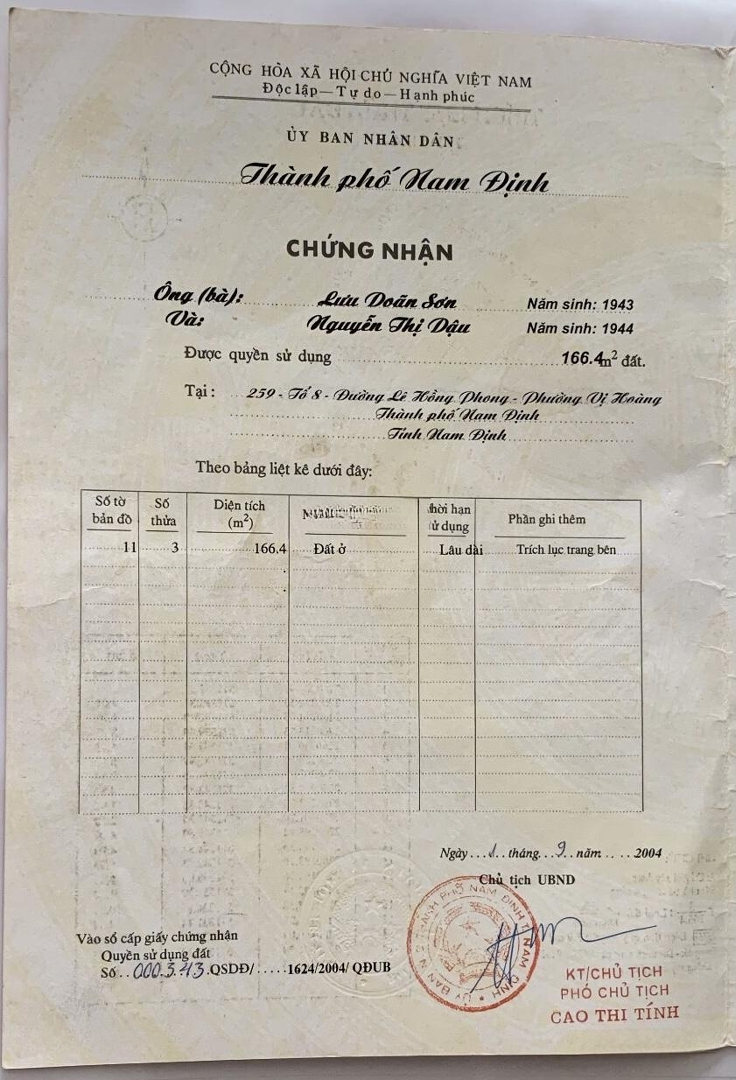 CỘNG HÒA XÃ HỘI CHỦ NGHĨA VIỆT NAM
Độc lập — Tự do — Hạnh phúc
ỦY BAN NHÂN DÂN
Thành phố Nam Định
CHỨNG NHẬN
Ông (bà): Lưu Doãn Sơn Năm sinh: 1943
Và: Nguyễn Thị Dậu Năm sinh: 1944
Được quyền sử dụng 166.4m² đất.
Tại: 259 - Tổ 8 - Đường Lê Hồng Phong - Phường Vị Hoàng
Thành phố Nam Định
Tỉnh Nam Định
Theo bảng liệt kê dưới đây:
Số tờ bản đồ Số thửa Diện tích (m²) hời hạn ử dụng Phần ghi thêm
11 3 166.4 Đất ở Lâu dài Trích lục trang bên
Ngày...1..tháng...9..năm.....2004
Chủ tịch UBND
Vào sổ cấp giấy chứng nhận
Quyền sử dụng đất
Số..000343.QSDĐ/.....1624/2004/QĐUB
KT/CHỦ TỊCH
PHÓ CHỦ TỊCH
CAO THI TÍNH